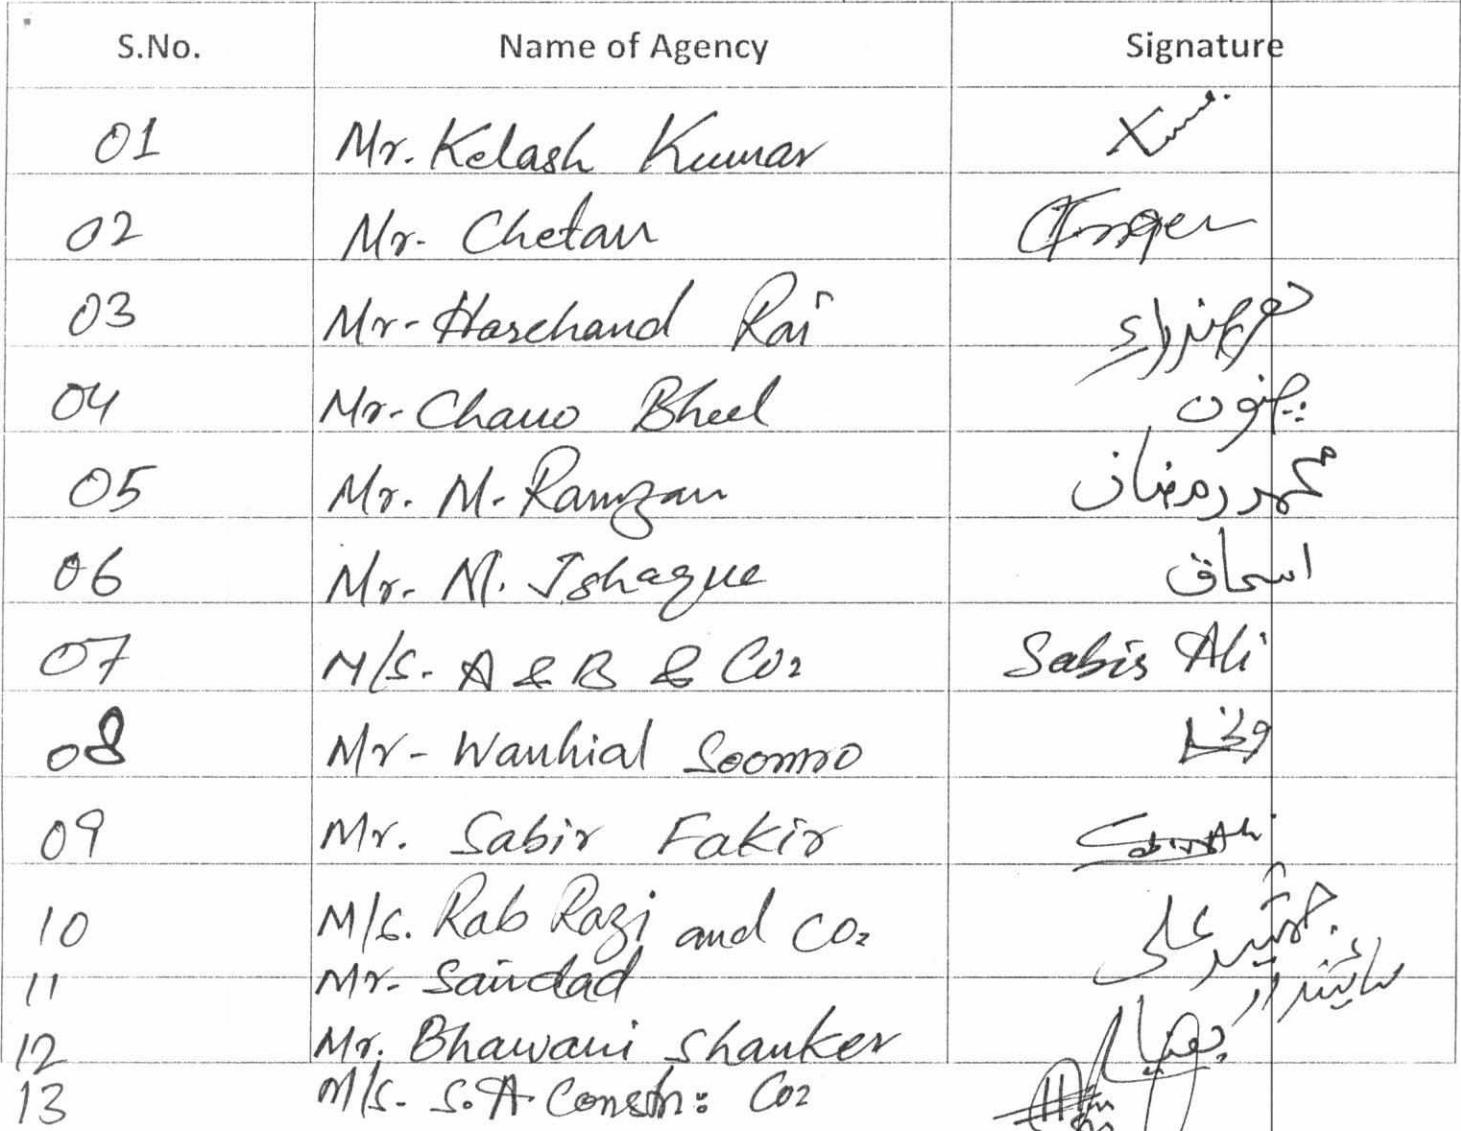 S.No. Name of Agency Signature
01 Mr. Kelash Kumar
02 Mr. Chetan
03 Mr. Harchand Rai
04 Mr. Chano Bheel
05 Mr. M. Ramzan محمد رمضان
06 Mr. M. Ishaque اسحاق
07 M/S. A & B & Co2 Sabir Ali
08 Mr. Wanhial Soomro
09 Mr. Sabir Fakir Sabir Ali
10 M/S. Rab Razi and Co2 جمشيد علی
11 Mr. Saindad
12 Mr. Bhawani Shanker
13 M/S. S.A. Constn: Co2